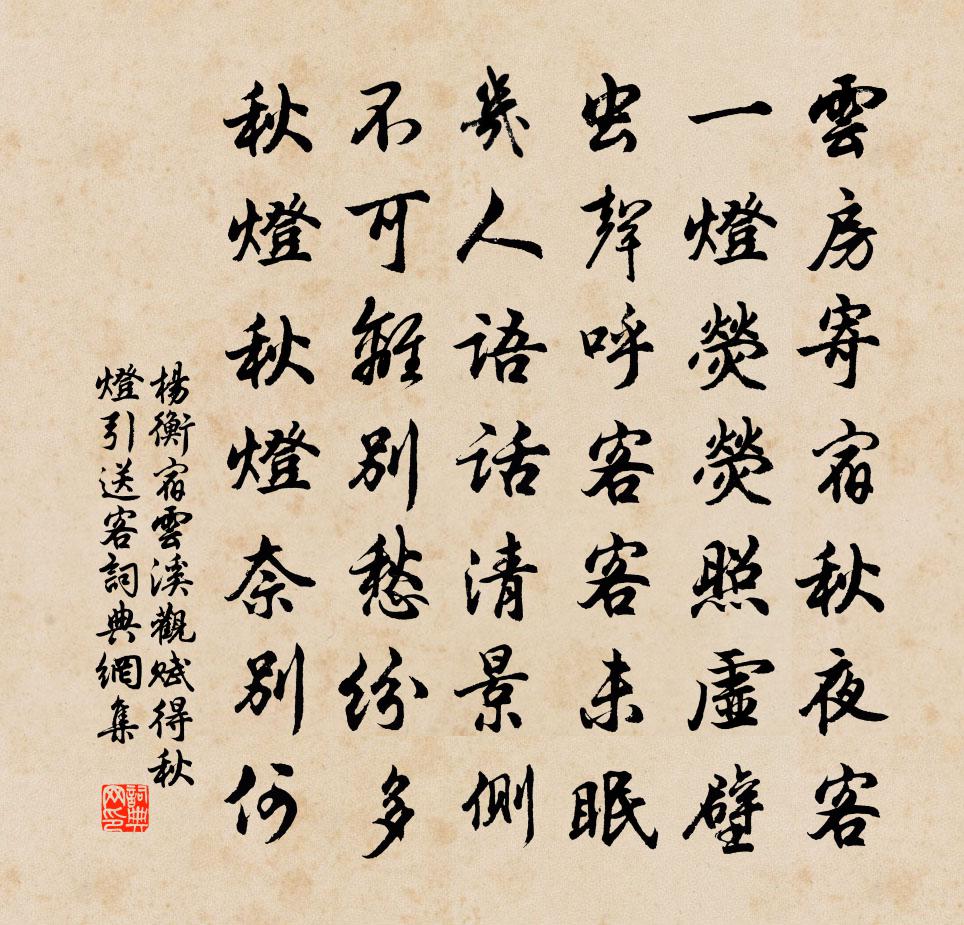 雲房寄宿秋夜客
一燈熒熒照虛壁
虫聲呼客客未眠
幾人語話清景側
不可離別愁紛多
秋燈秋燈奈別何
楊衡宿雲溪觀賦得秋
燈引送客詞典網集
詞典
网印